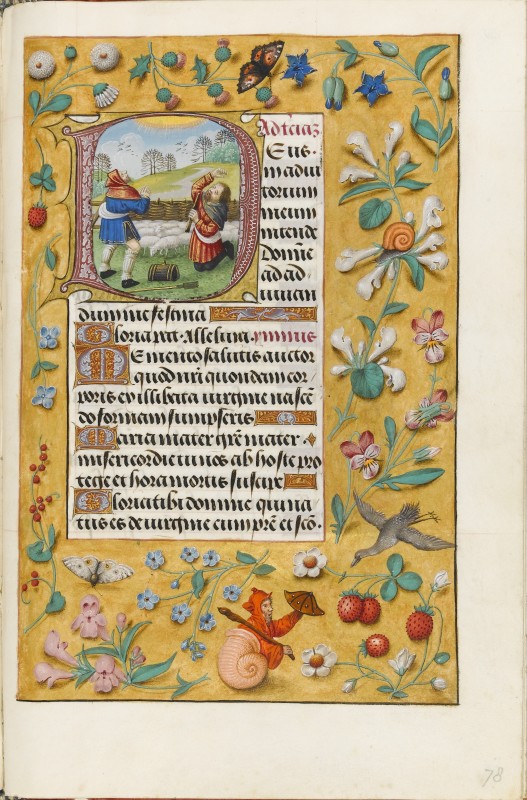 Ad t'ciaz
Deus
in adiu
torium
meum
intende
Domine
ad ad
iuuan
dum me festina
Gloria pat Alleluia ymnus
Memento salutis auctor
quod nri quondam cor
poris ex illibata uirgine nascen
do formam sumpseris
Maria mater gre mater
misericordie tu nos ab hoste pro
tege et hora mortis suscipe
Gloria tibi domine qui na
tus es de uirgine cum pre et sco.
78